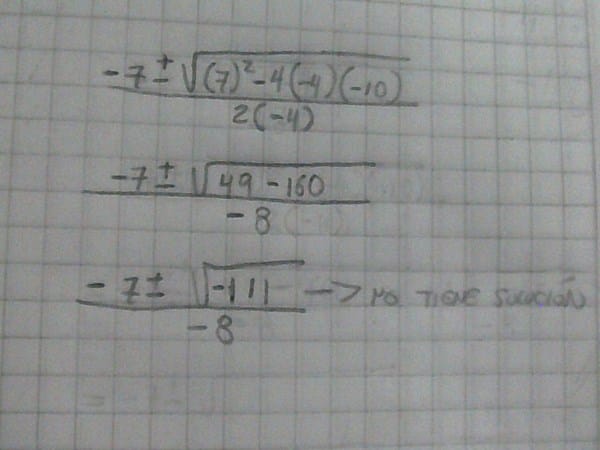 -7 ± √(7)² - 4(-4)(-10)
2(-4)
-7 ± √49 - 160
-8
-7 ± √-111 -> NO TIENE SOLUCIÓN
-8